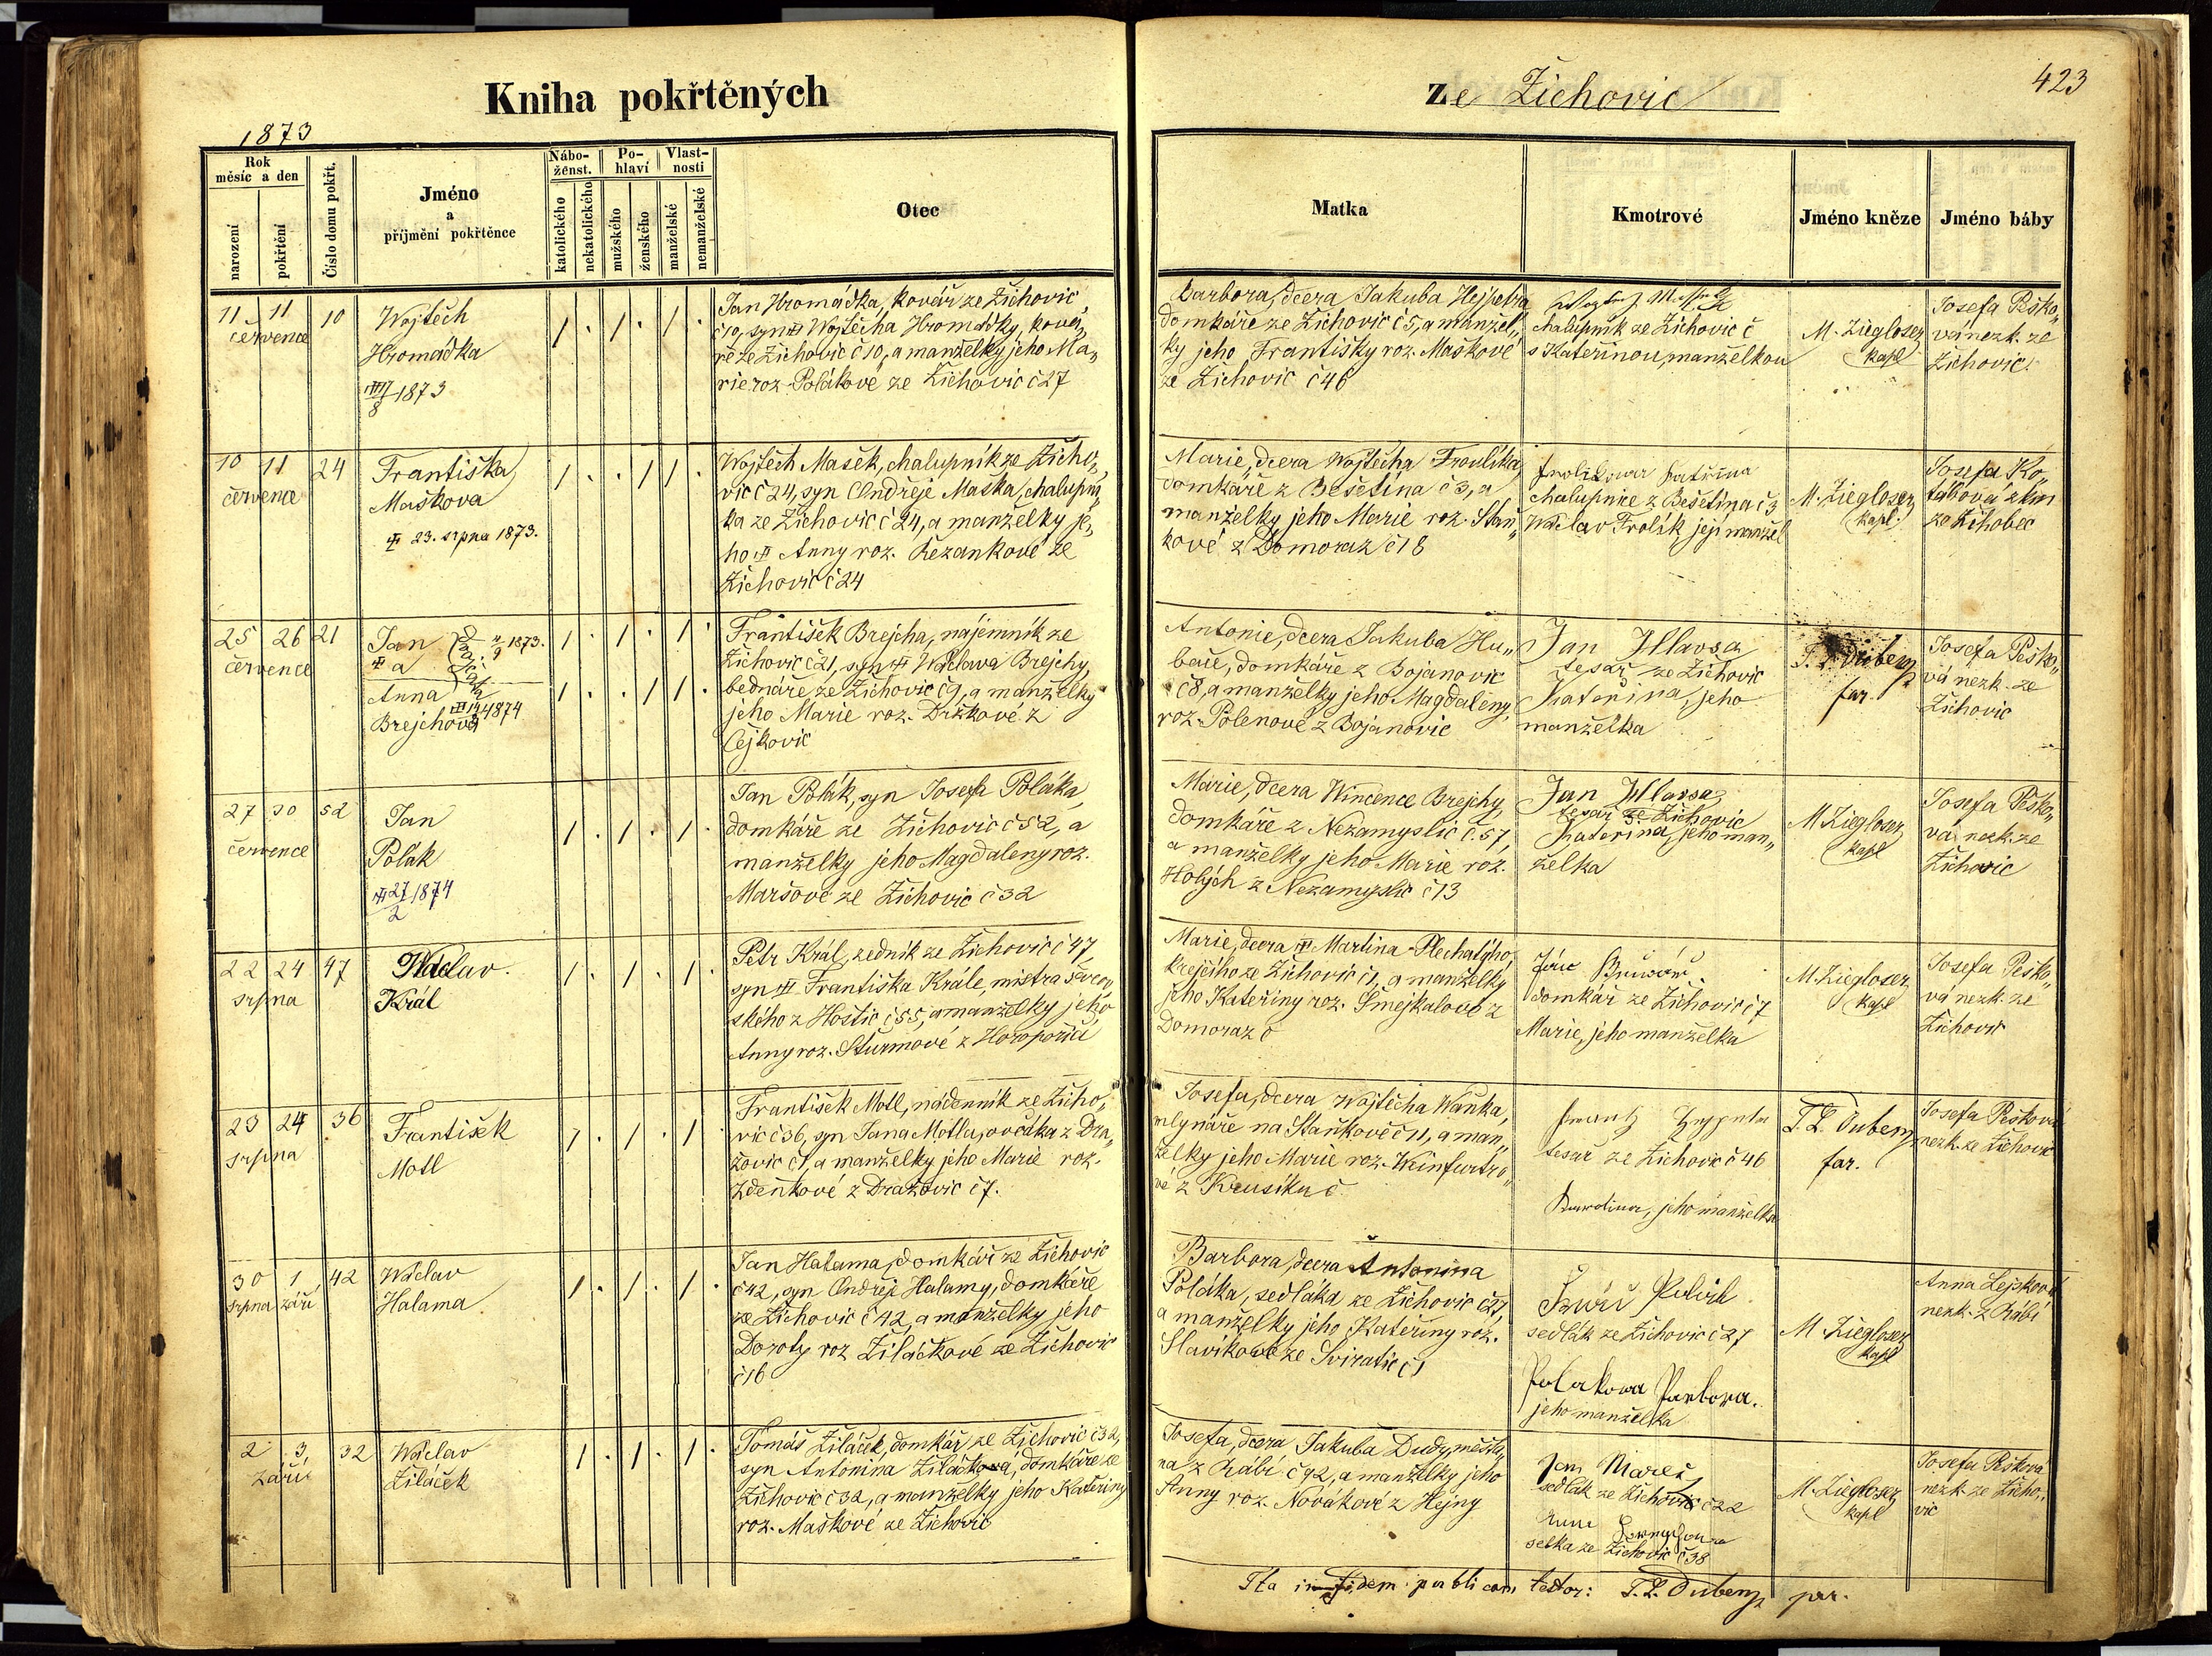 Kniha pokřtěných
ze Žichovic
423
1873
Rok
měsíc a den
narození
pokřtění
Číslo domu pokřt.
Jméno
a
příjmění pokřtěnce
Nábo-
ženst.
katolického
nekatolického
Po-
hlaví
mužského
ženského
Vlast-
nosti
manželské
nemanželské
Otec
Matka
Kmotrové
Jméno kněze
Jméno báby
11 11 10
července
Wojtěch
Hromádka
1873
8
Jan Hromádka, kovář ze Žichovic
č10, syn Wojtěcha Hromádky, ková„
ře ze Žichovic č10, a manželky jeho Ma„
rie roz. Polákové ze Žichovic č27
Barbora, dcera Jakuba Hejpetra
domkáře ze Žichovic č5, a manžel„
ky jeho Františky roz. Maškové
ze Žichovic č46
chalupník ze Žichovic č
s Kateřinou, manželkou
M. Ziegloser
kapl
Josefa Peško„
vá nezk. ze
Žichovic
10 11 24
července
Františka
Maškova
23. srpna 1873.
Wojtěch Mašek, chalupník ze Žicho„
vic č24, syn Ondřeje Maška, chalupní„
ka ze Žichovic č24, a manželky je„
ho Anny roz. Řezankové ze
Žichovic č24
Marie, dcera Wojtěcha Froulíka,
domkáře z Bešetína č3, a
manželky jeho Marie roz. Staň„
kové z Domoraz č18
chalupnice z Bešetína č3
Wáclav Frolík, její manžel
M. Ziegloser
kapl.
Josefa Ko„
tábová zkou
ze Žihobec
25 26 21
července
Jan 1873.
a
Anna 1874
Brejchova
František Brejcha, nájemník ze
Žichovic č21, syn Wáclava Brejchy,
bednáře ze Žichovic č9, a manželky
jeho Marie roz. Držkové z
Čejkovic
Antonie, dcera Jakuba Hu„
bače, domkáře z Bojanovic
č8, a manželky jeho Magdaleny,
roz. Polenové z Bojanovic
Jan Hlavsa
tesař ze Žichovic
Kateřina, jeho
manželka
T. L. Dubený
far.
Josefa Peško„
vá nezk. ze
Žichovic
27 30 52
července
Jan
Polák
27 1874
2
Jan Polák, syn Josefa Poláka,
domkáře ze Žichovic č52, a
manželky jeho Magdaleny roz.
Maršové ze Žichovic č32
Marie, dcera Wincence Brejchy,
domkáře z Nezamyslic č. 57,
a manželky jeho Marie roz.
Holých z Nezamyslic č13
Jan Hlavsa,
tesař ze Žichovic
Kateřina, jeho man„
želka
M Ziegloser
kapl
Josefa Peško„
vá nezk. ze
Žichovic
22 24 47
srpna
Wáclav.
Král
Petr Král, zedník ze Žichovic č47,
syn Františka Krále, mistra ševcov„
ského z Hostic č55, a manželky jeho
Anny roz. Šturmové z
Marie, dcera Martina Plechatýho,
krejčího ze Žichovic č1, a manželky
jeho Kateřiny roz. Šmejkalové z
Domoraz č
domkář ze Žichovic č7
Marie, jeho manželka
M. Ziegloser
kapl
Josefa Peško„
vá nezk. ze
Žichovic
23 24 36
srpna
František
Motl
František Motl, nádenník ze Žicho„
vic č36, syn Jana Motla, ovčáka z Dra„
žovic č1, a manželky jeho Marie roz.
Zdeňkové z Dražovic č7.
Josefa, dcera Wojtěcha Waňka,
mlynáře na Staňkově č11, a man„
želky jeho Marie roz. Weinfurtro„
vé z Krusíku č
tesař ze Žichovic č46
Karolina, jeho manželka
T. L. Dubený
far.
Josefa Pešková
nezk. ze Žichovic
30 1 42
srpna září
Wáclav
Halama
Jan Halama, domkář ze Žichovic
č42, syn Ondřeje Halamy, domkáře
ze Žichovic č42, a manželky jeho
Doroty roz Žiláčkové ze Žichovic
č16
Barbora, dcera Antonina
Poláka, sedláka ze Žichovic č27,
a manželky jeho Kateřiny roz.
Slavíkové ze Sviratic č1
sedlák ze Žichovic č27
Polakowa Barbora.
jeho manželka
M. Ziegloser
kapl
Anna Lejsková
nezk. z Rábí
2 3 32
září
Wáclav
Žiláček
Tomáš Žiláček, domkář ze Žichovic č32,
syn Antonina Žiláčka, domkáře ze
Žichovic č32, a manželky jeho Kateřiny
roz. Maškové ze Žichovic
Josefa, dcera Jakuba Dudy, měšťa„
na z Rábí č92, a manželky jeho
Anny roz. Novákové z Hejny
Jan Mareš,
sedlák ze Žichovic č22
selka ze Žichovic č38
M. Ziegloser
kapl
Josefa Pešková
nezk. ze Žicho„
vic
Ita in fidem publicam testor: T. L. Dubený par.